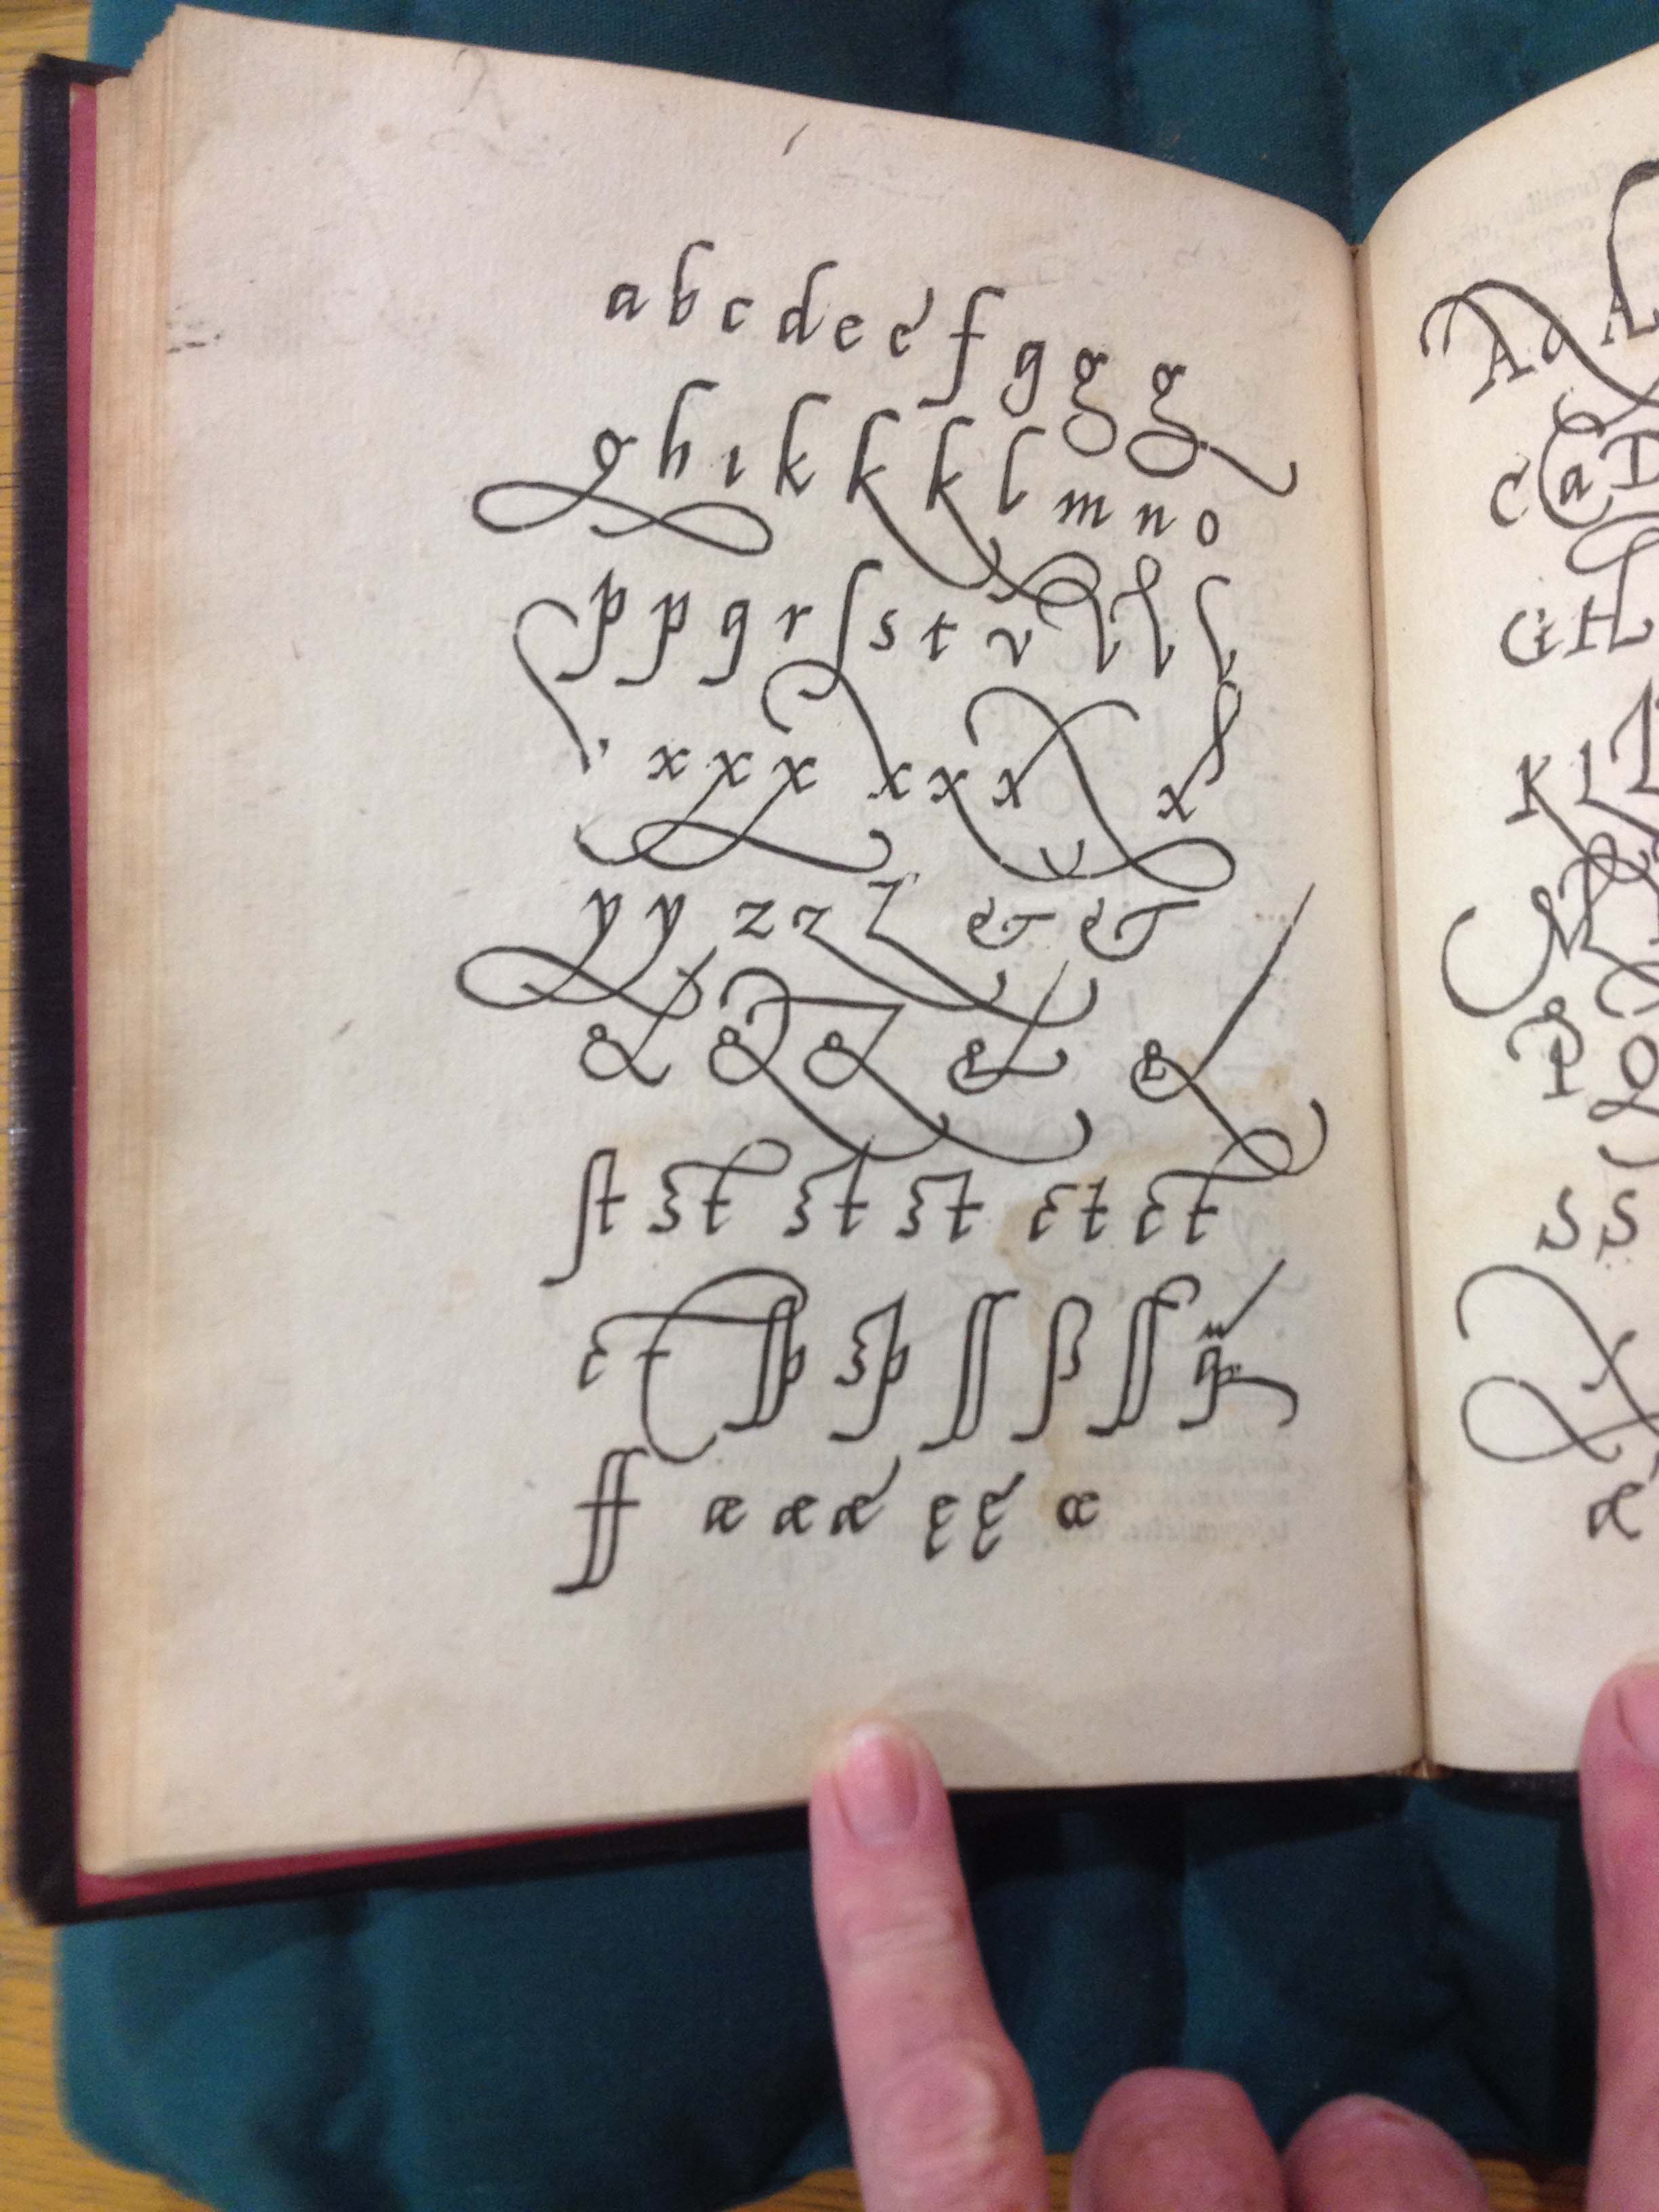 a b c d e e f g g g
g h i k k k l m n o
p p q r ſ s t v v v v
v x x x x x x x
y y z z z & &
& & & & &
ſt st st st ct ct
ct ſp sp ſſ ß ſſ
ff æ æ æ ę ę œ
A a A
C a D
G H
K L L
N
P Q
S S
æ